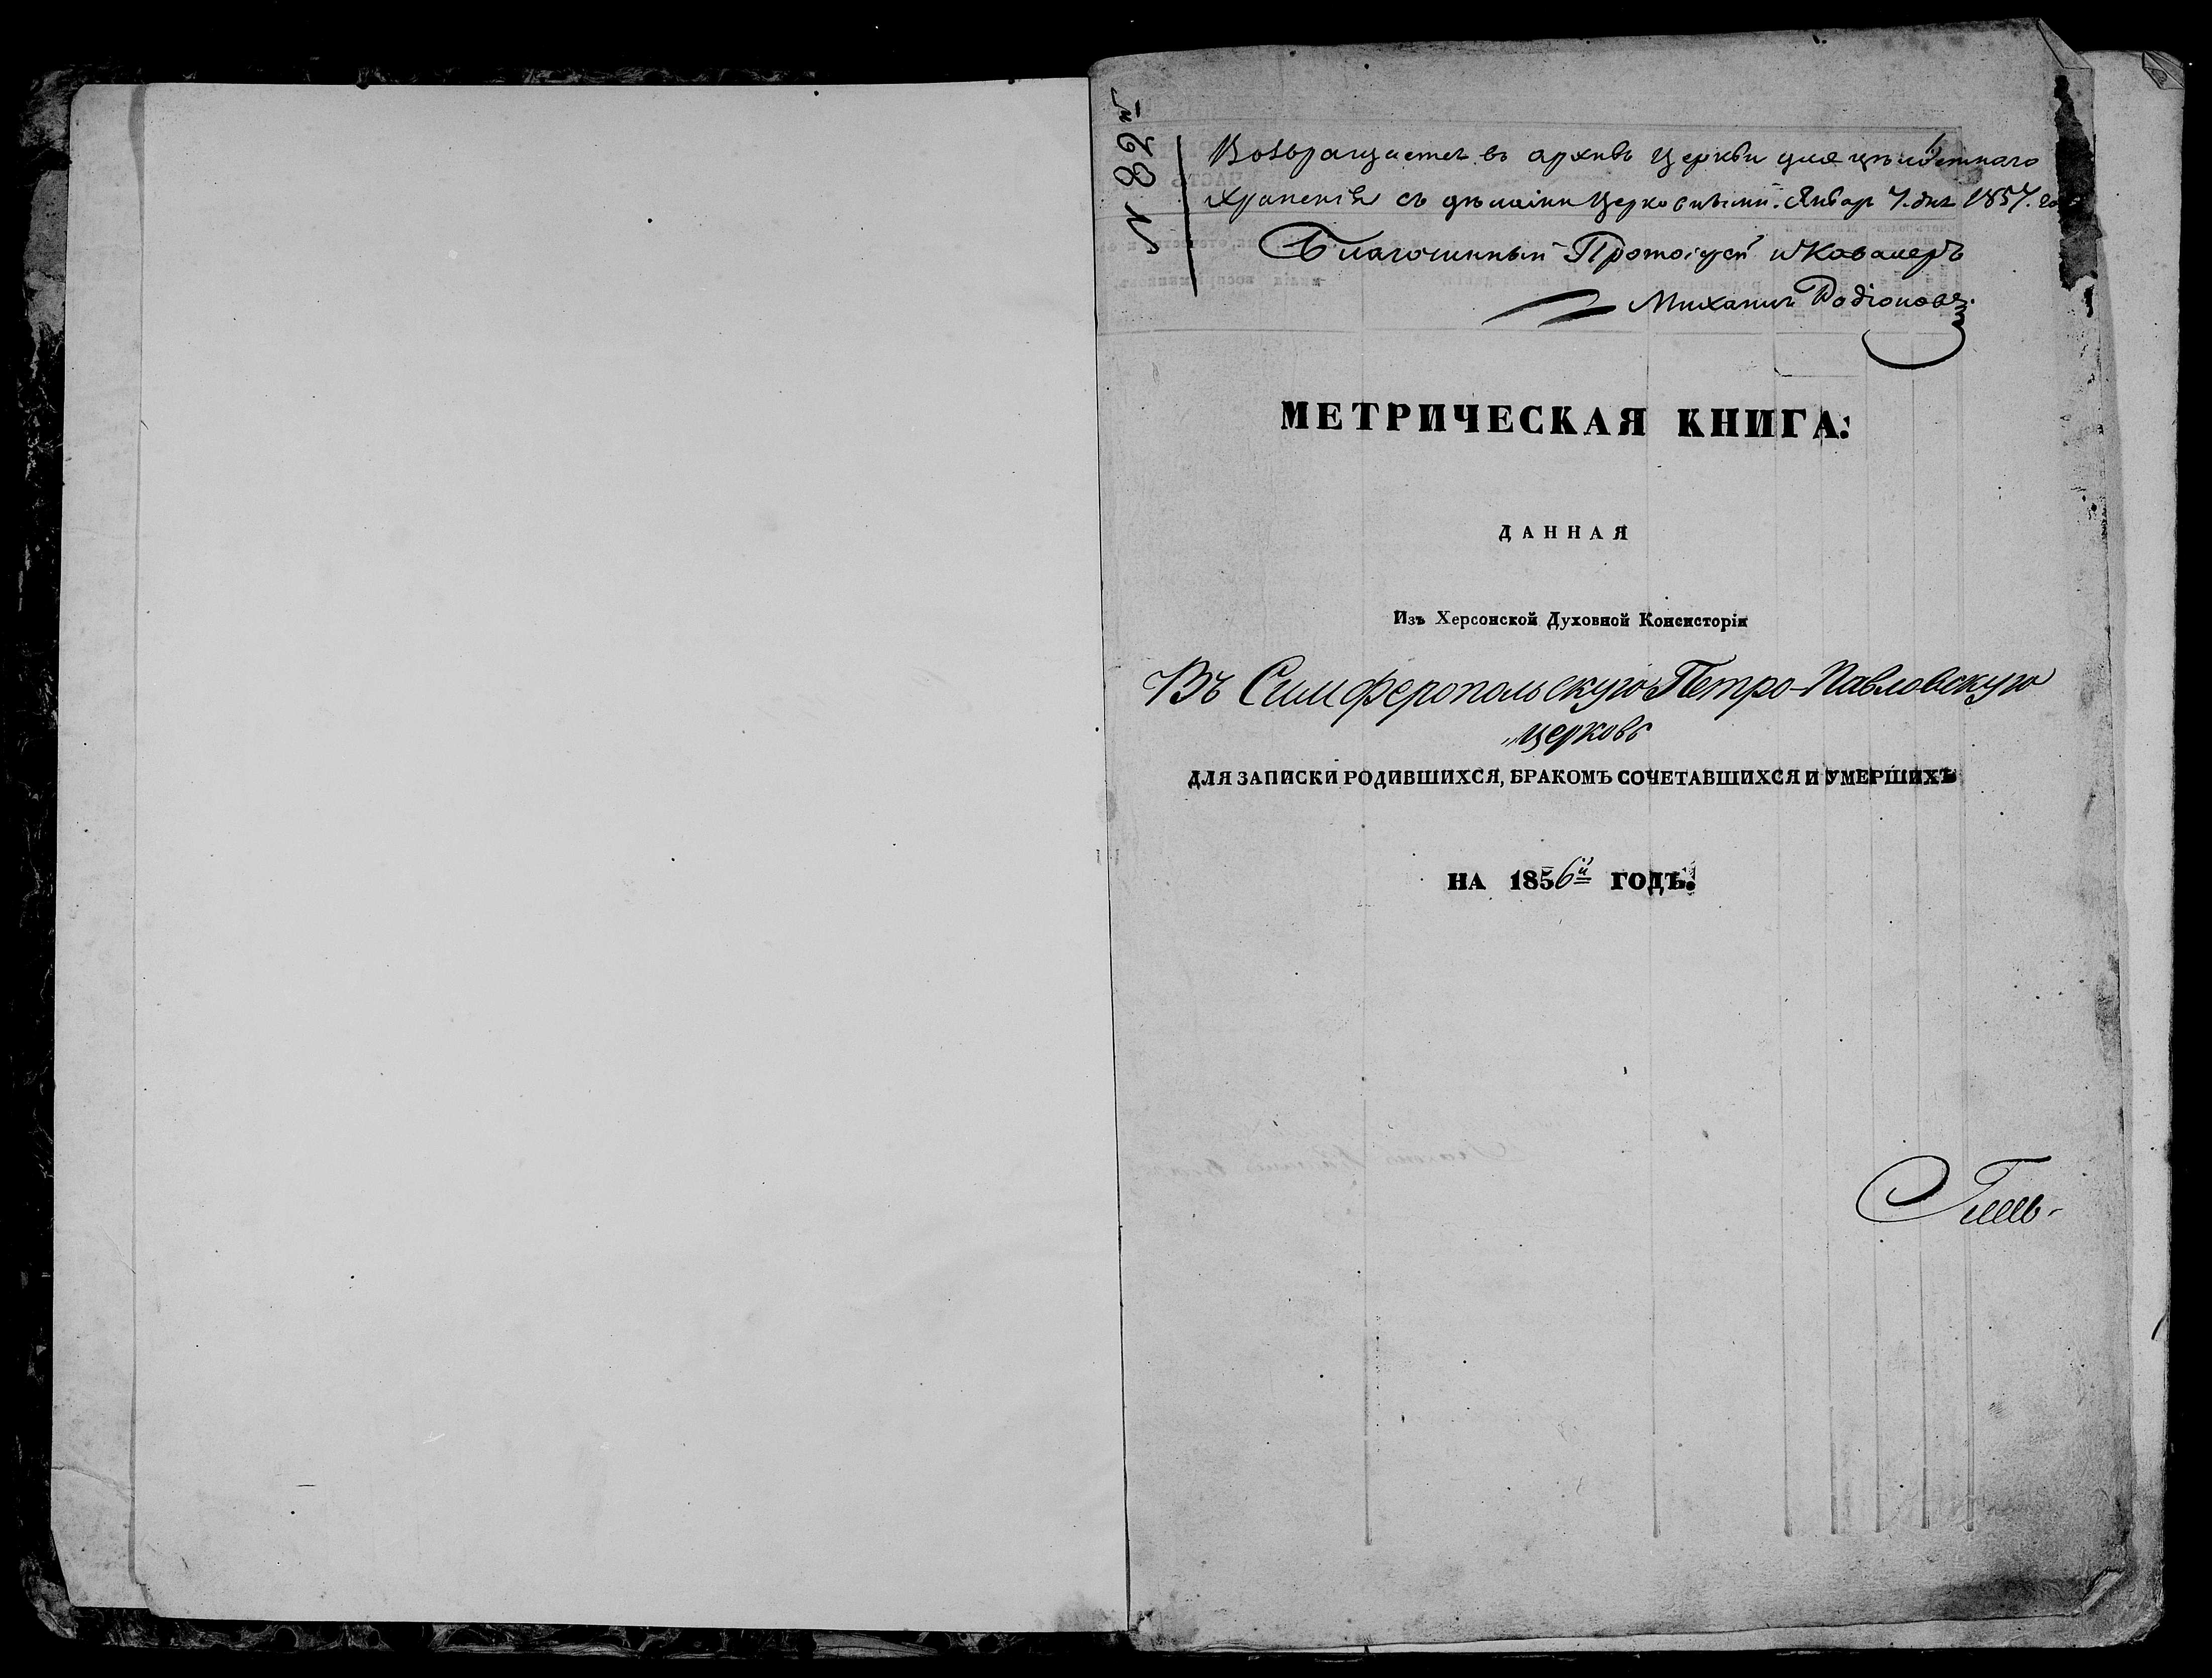 N 82й
Возвращается въ архивъ Церкви для цѣлостнаго
храненія съ дѣлами Церковными. Январ 7. дня 1857. го
Благочинный Протоіерей и Кавалеръ
Михаилъ Родіоновъ.
МЕТРИЧЕСКАЯ КНИГА:
ДАННАЯ
Изъ Херсонской Духовной Консисторіи
Въ Симферопольскую Петро-Павловскую
церковь
ДЛЯ ЗАПИСКИ РОДИВШИХСЯ, БРАКОМЪ СОЧЕТАВШИХСЯ И УМЕРШИХЪ
НА 1856й ГОДЪ.